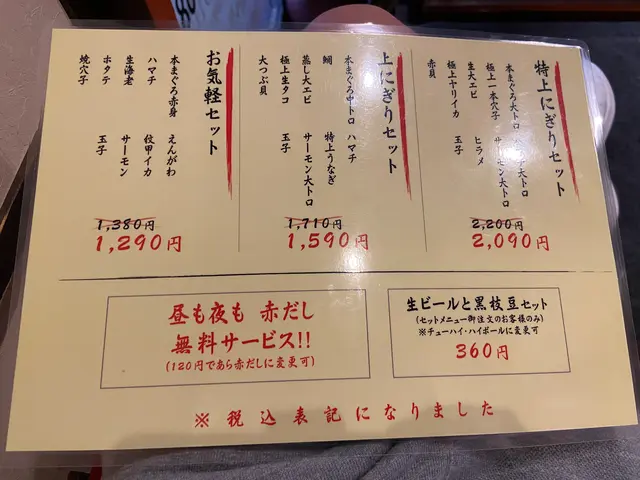 特上にぎりセット
本まぐろ大トロ
極上一本穴子
サーモン大トロ
生大エビ
ヒラメ
極上ヤリイカ
玉子
赤貝
2,200円
2,090円
上にぎりセット
本まぐろ中トロ
ハマチ
鯛
特上うなぎ
蒸し大エビ
サーモン大トロ
極上生タコ
玉子
大つぶ貝
1,710円
1,590円
お気軽セット
本まぐろ赤身
えんがわ
ハマチ
紋甲イカ
生海老
サーモン
ホタテ
玉子
焼穴子
1,380円
1,290円
昼も夜も 赤だし
無料サービス!!
(120円であら赤だしに変更可)
生ビールと黒枝豆セット
(セットメニュー御注文のお客様のみ)
※チューハイ・ハイボールに変更可
360円
※税込表記になりました